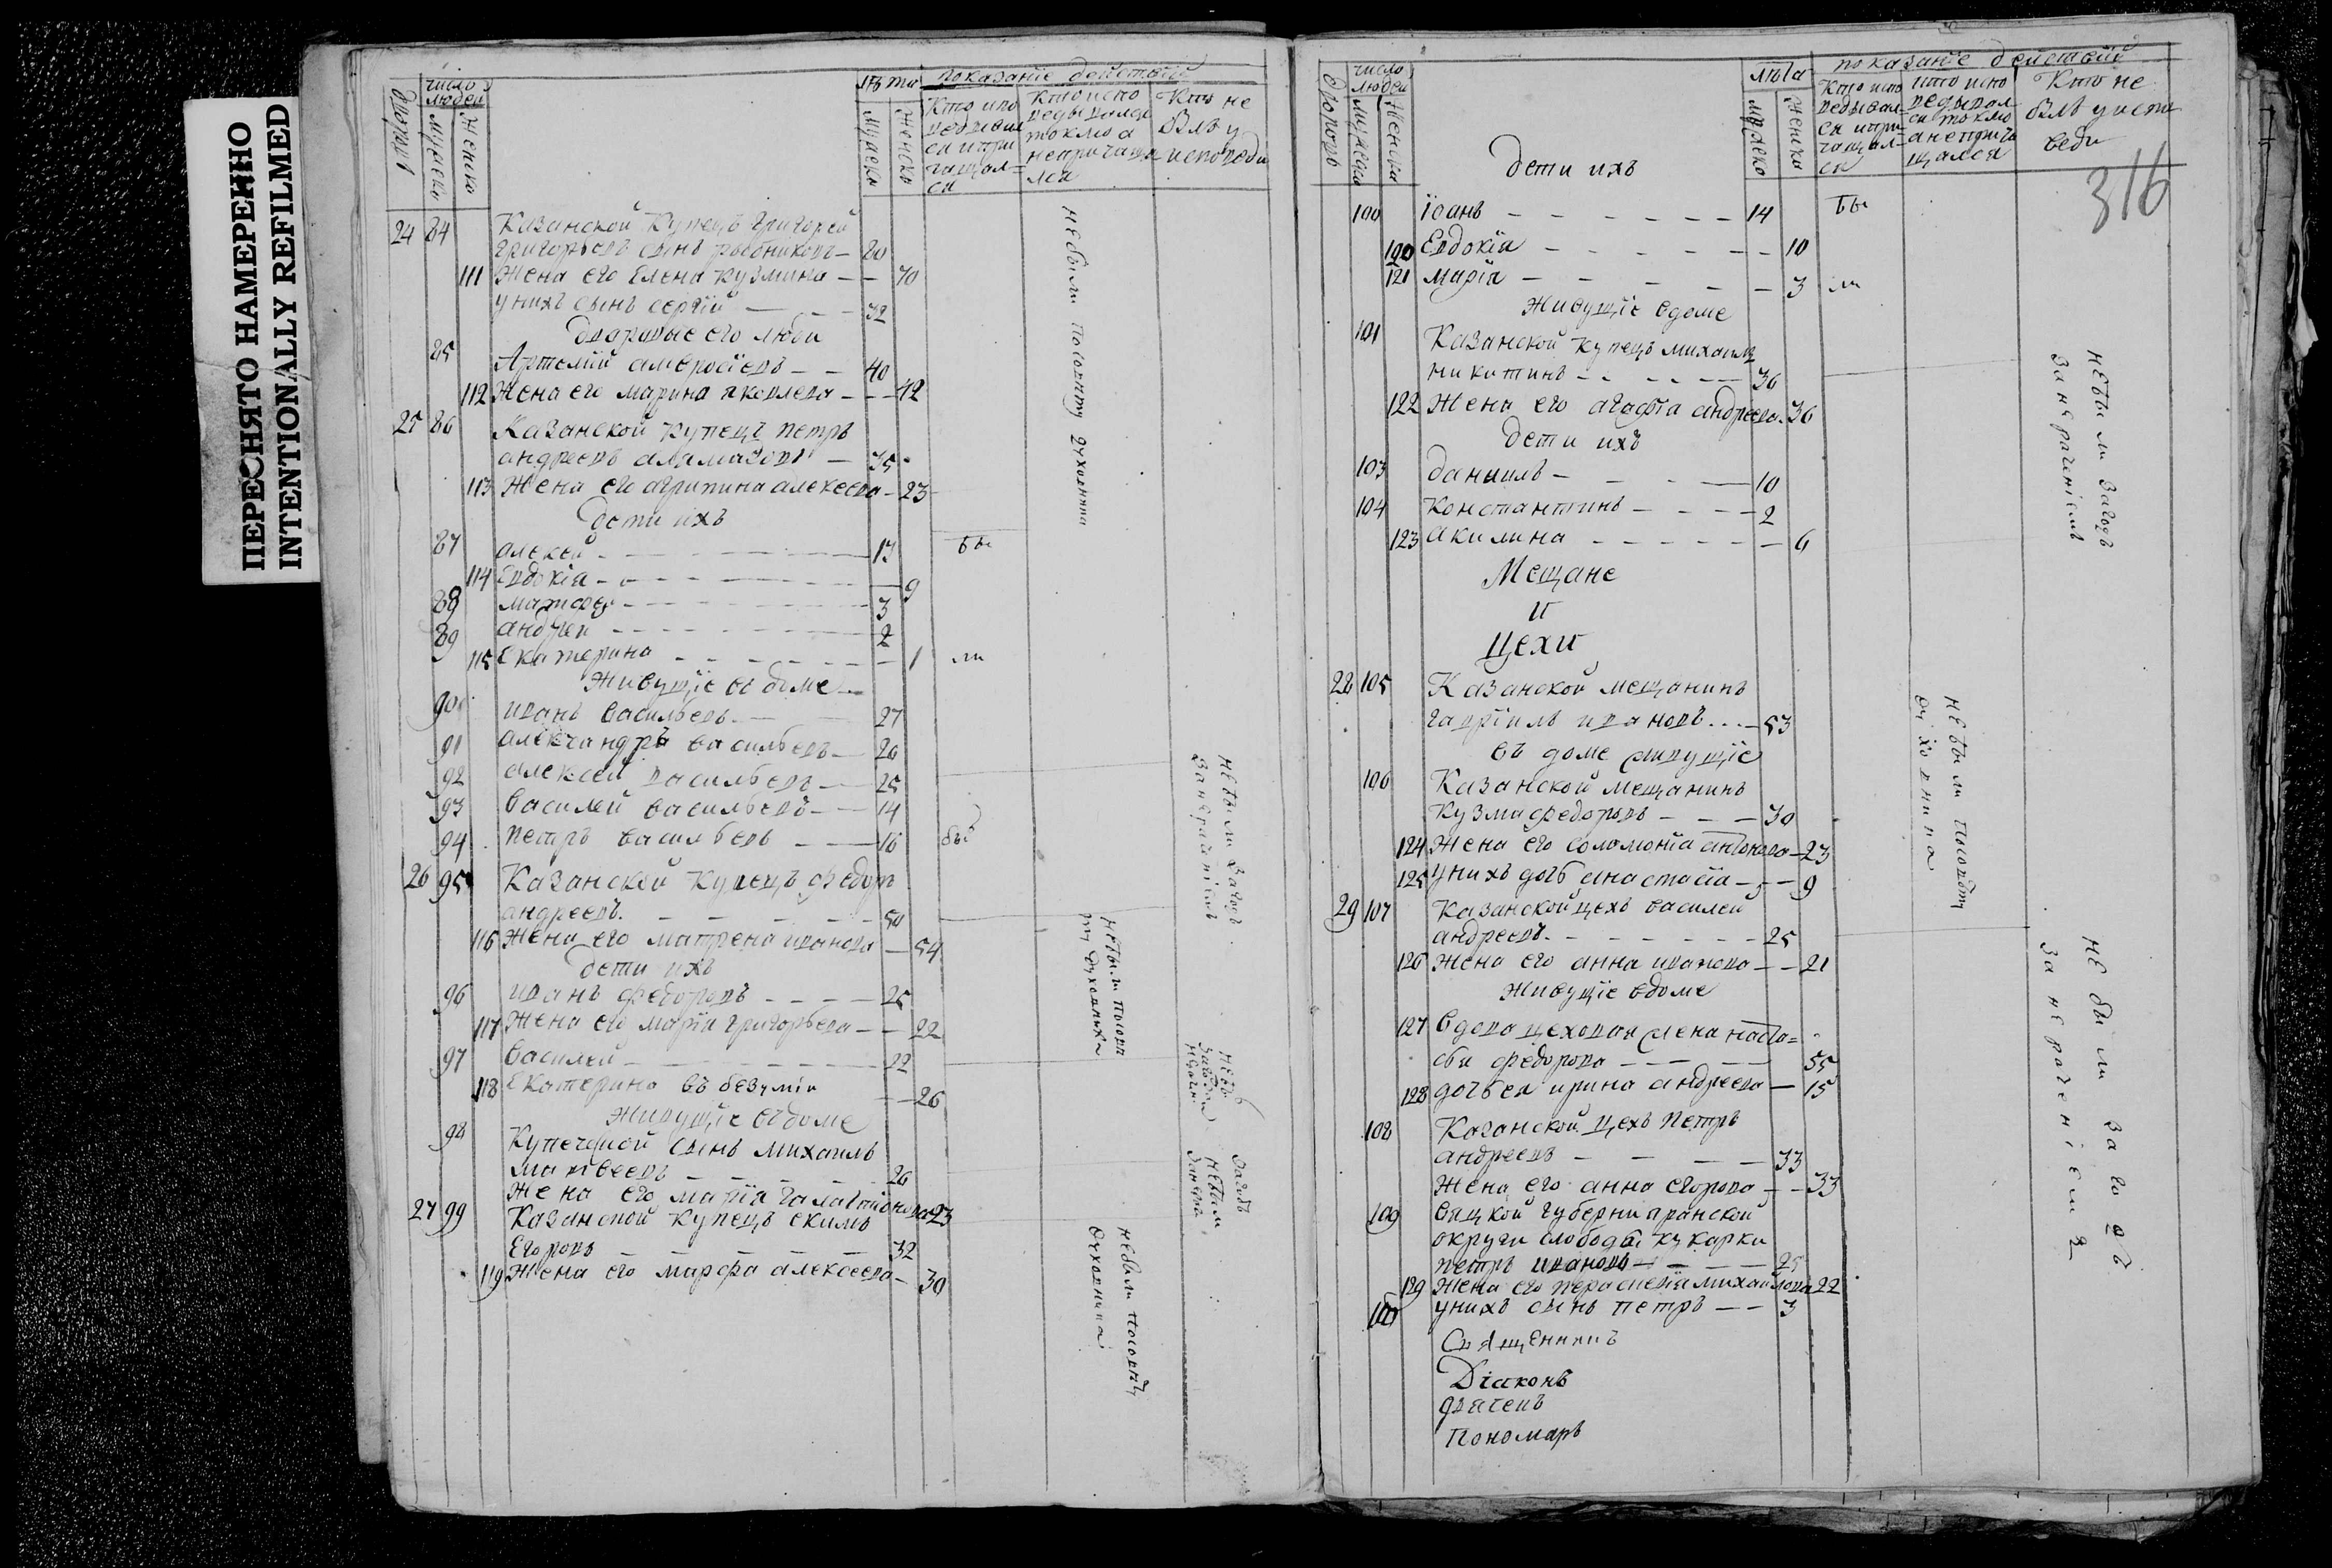 ПЕРЕСНЯТО НАМЕРЕННО
INTENTIONALLY REFILMED
число людей
лѣта
показанїе действий
дворовъ
мужеска
женска
мужеска
женска
Кто испо
ведывал
ся и при
чащал=
ся
Кто испо
ведывался
токмо а
непричаща
лся
Кто не
былъ у
исповеди
24 84 Казанской Купецъ григорей
григорьевъ сынъ рыбниковъ 80
111 Жена его Елена кузмина 70
у нихъ сынъ сергїй 32
дворовые его люди
85 Артемїй амвросїевъ 40
112 Жена его марина яковлева 42
25 86 Казанской купецъ петръ
андреевъ аламазовъ 35
113 Жена его агрипина алексеева 23
дети ихъ
87 алексей 13
114 Евдокїя 9
88 матфей 3
89 андрей 2
115 Екатерина 1
Живущїе въ доме
90 иванъ васильевъ 27
91 александръ васильевъ 26
92 алексей васильевъ 25
93 Василей васильевъ 14
94 петръ васильевъ 16
26 95 Казанской купецъ федоръ
андреевъ 50
116 Жена его матрена иванова 54
дети ихъ
96 иванъ федоровъ 25
117 Жена его марїя григорьева 22
97 Василей 22
118 Екатерина въ безумїи 26
Живущїе въ доме
98 Купеческой сынъ михаилъ
матвеевъ 26
Жена его марїя галактионова 23
27 99 Казанской купецъ екимъ
Егоровъ 32
119 Жена его марфа алексеева 30
небыли посовѣту духовника
бы
ли
бы
небыли загодъ
небыли посовѣту
духовника
число людей
лѣта
показанїе действий
дворовъ
мужеска
женска
мужеска
женска
Кто испо
ведывал
ся и при
чащал=
ся
кто испо
ведывал
ся токмо
а неприча
щался
Кто не
былъ у испо
веди
316
дети ихъ
100 їоанъ 14
120 Евдокїя 10
121 марїя 3
Живущїе вдоме
101 Казанской купецъ михаила
никитинъ 36
122 Жена его агафїа андреева 36
дети ихъ
103 данїилъ 10
104 Константинъ 2
123 акилина 6
Мещане
и
Цехи
28 105 Казанской мещанинъ
гаврїилъ ивановъ 53
въ доме живущїе
106 Казанской мещанинъ
Кузма федоровъ 30
124 Жена его соломонїа антонова 23
125 у нихъ дочь анастасїа 9
29 107 Казанской цехъ василей
андреевъ 25
126 жена его анна иванова 21
Живущїе вдоме
127 Вдова цеховая жена наста=
сья федорова 55
128 дочь ея ирина андреева 15
108 Казанской цехъ петръ
андреевъ 33
Жена его анна егорова 33
109 Вяцкой губерни яранской
округи слободы кукарки
петръ ивановъ 25
129 Жена его парасковїя михаилова 22
у нихъ сынъ петръ 3
Священникъ
Дїаконъ
дьячекъ
Пономарь
бы
ли
небыли загодъ
занерачениемъ
небыли посовѣту
духовника
не были загодъ
занерачениемъ